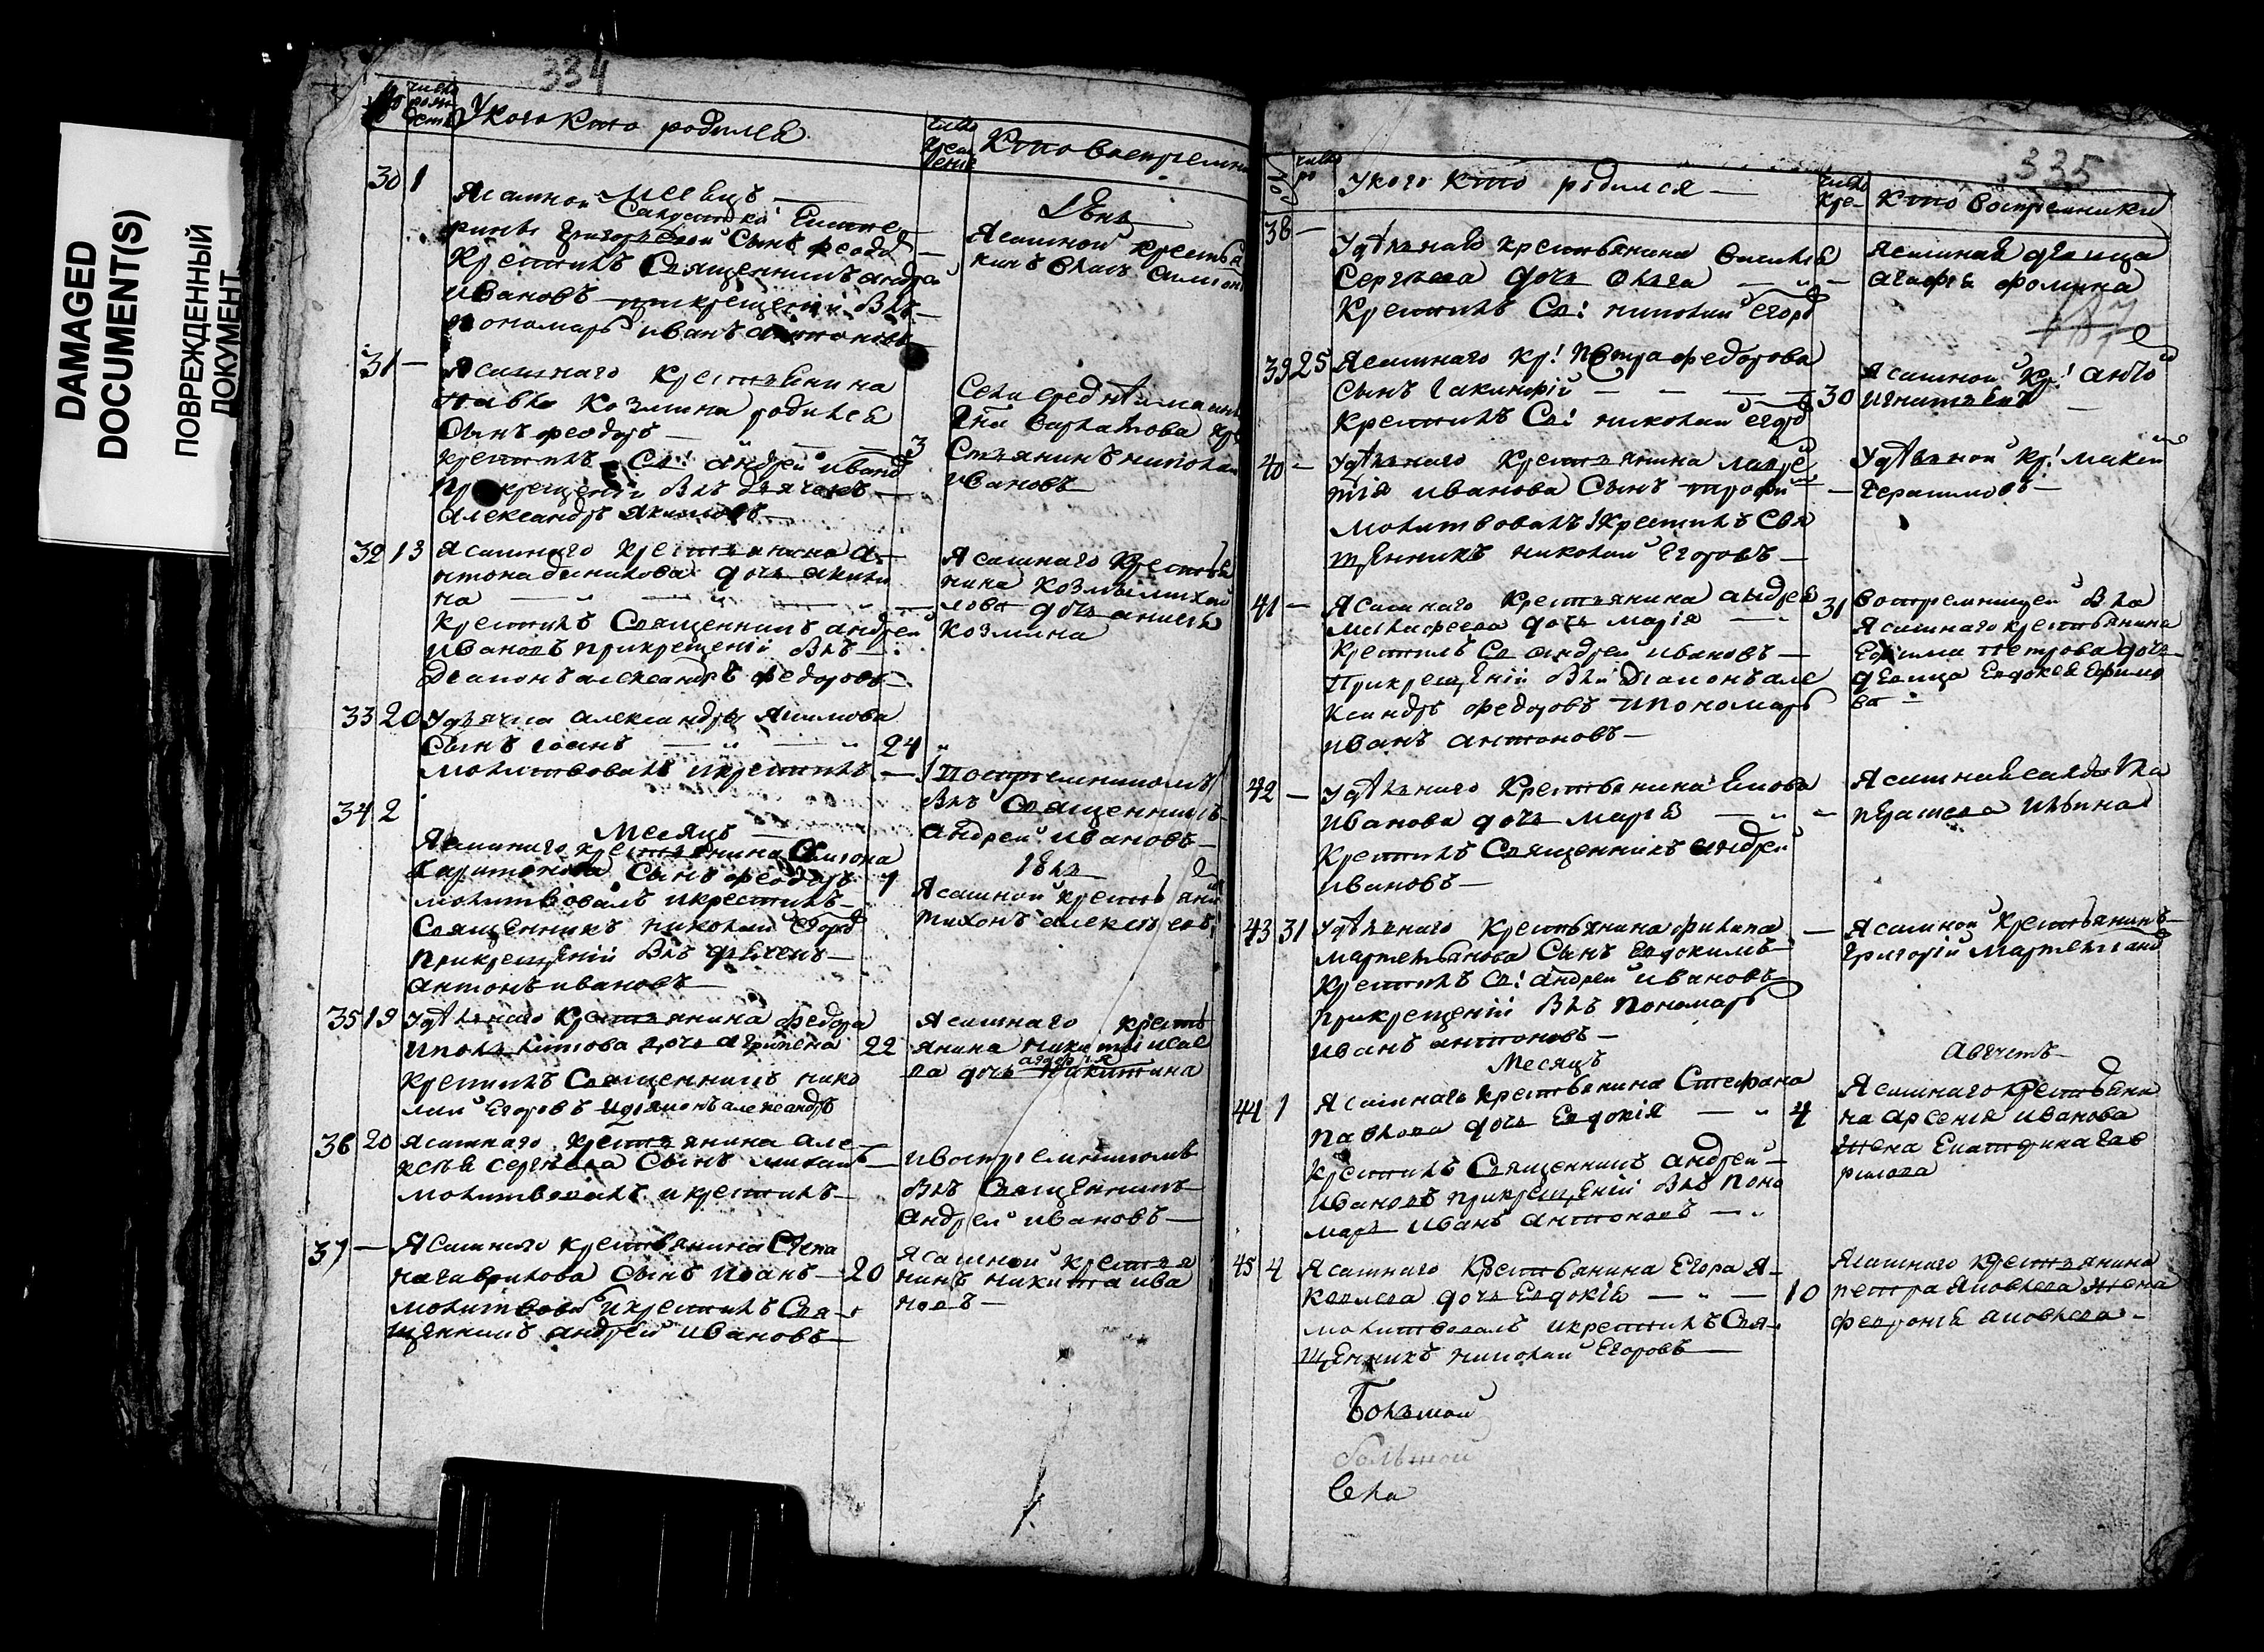 DAMAGED
DOCUMENT(S)
ПОВРЕЖДЕННЫЙ
ДОКУМЕНТ
334
№ число рожде У кого кто родился
число креще Кто восприемни
30 1 Месяцъ Iюнь
Ясашной Солдатки Екате
рины Григорьевой Сынъ Феодо
Крестилъ Священникъ Андрей
Ивановъ прикрещенiи Былъ
Пономарь Иванъ Антоновъ
Ясашной крестья
нинъ Симіон
31 — Ясашнаго Крестьянина
Павла Козмина родился
Сынъ Феодоръ —
крестилъ Св: Андрей Ивано
При крещенiи Былъ Дьячекъ
Александръ Якимовъ
3
Села
Стьянинъ Николай
Ивановъ
32 13 Ясашнаго крестьянина А
нтона дочь Акили
на
Крестилъ Священникъ Андрей
Ивановъ прикрещенiи Былъ
Дiаконъ Александръ Федоровъ
Ясашнаго Крестья
нина Козмы Михаи
лова дочь Анисья
Козмина
33 20 У дьячка Александра Якимова
Сынъ Iоанъ — 24
Молитвовалъ и крестилъ —
И восприемникомъ
Былъ Священникъ
Андрей Ивановъ
34 2
Месяцъ Iюль
Ясашнаго крестьянина Симиона
Харитонова Сынъ Феодоръ 7
молитвовалъ и крестилъ
Священникъ Николай Егоро
Прикрещенiи Былъ дьячекъ
Антонъ Ивановъ
Ясашной крестьяни
Тихонъ Алексеевъ
35 19 Удѣльнаго Крестьянина Федора
Иполитова дочь Агрипена 22
крестилъ Священникъ Нико
лай Егоровъ и дiяконъ Александръ
Ясашнаго крестъ
янина Никиты Исае
ва дочь Агафiя Никитина
36 20 Ясашнаго крестьянина Але
ксѣя Сергѣева Сынъ Михаилъ
молитвовалъ и крестилъ
И восприемникомъ
Былъ Священникъ
Андрей Ивановъ
37 — Ясашнаго крестьянина Степа
на Гаврилова Сынъ Иванъ — 20
молитвовал и крестилъ Свя
щенникъ Андрей Ивановъ
Ясашной крестья
нинъ Никита Ива
новъ
335
№ число ро У кого кто родился —
число кре— Кто Восприемники
38 — Удѣльнаго крестьянина Василья
Сергѣева дочь Ольга —
Крестилъ Св: Николай Егоро
Ясашная дѣвица
Агафья Фомина
39 25 Ясашнаго Кр: Петра Федорова
Сынъ Iакинфiй — 30
Крестилъ Св: Николай Егоро
Ясашной Кр:
Игнатьевъ
40 — Удѣльнаго Крестьянина Лавре
нтiя Иванова Сынъ Трофи —
Молитвовалъ и крестилъ Свя
щенникъ Николай Егоровъ
Удѣльной Кр:
Герасимовъ
41 — Ясашнаго Крестьянина Андрея
дочь Марiя — 31
Крестилъ Св Андрей Ивановъ
Прикрещенiи Были Дiаконъ Але
ксандръ Федоровъ и пономарь
Иванъ Антоновъ
Восприемницей Была
Ясашнаго крестьянина
Ефима Петрова дочь
дѣвица Евдокея Ефимо
ва
42 — Удѣльнаго Крестьянина
Иванова дочь Марiя —
Крестилъ Священникъ Андрей
Ивановъ
Ясашная Солдатка
Ильина
43 31 Удѣльнаго Крестьянина Филипа
Мартемьянова Сынъ Евдокимъ
Крестилъ Св: Андрей Ивановъ
прикрещенiи Былъ Пономарь
Иванъ Антоновъ
Ясашной Крестьянинъ
Григорiй
Месяцъ Августъ
44 1 Ясашнаго крестьянина Стефана
Павлова дочь Евдокiя — 4
Крестилъ Священникъ Андрей
Ивановъ прикрещенiи Былъ Поно
марь Иванъ Антоновъ
Ясашнаго Крестьяни
на Арсенiя Иванова
Жена Екатерина Гав
рилова
45 4 Ясашнаго Крестьянина Егора Я
ковлева дочь Евдокiя — 10
молитвовалъ и крестилъ Свя
щенникъ Николай Егоровъ
Ясашнаго Крестьянина
петра Яковлева жена
Февронья Яковлева
Большой
большой
Села